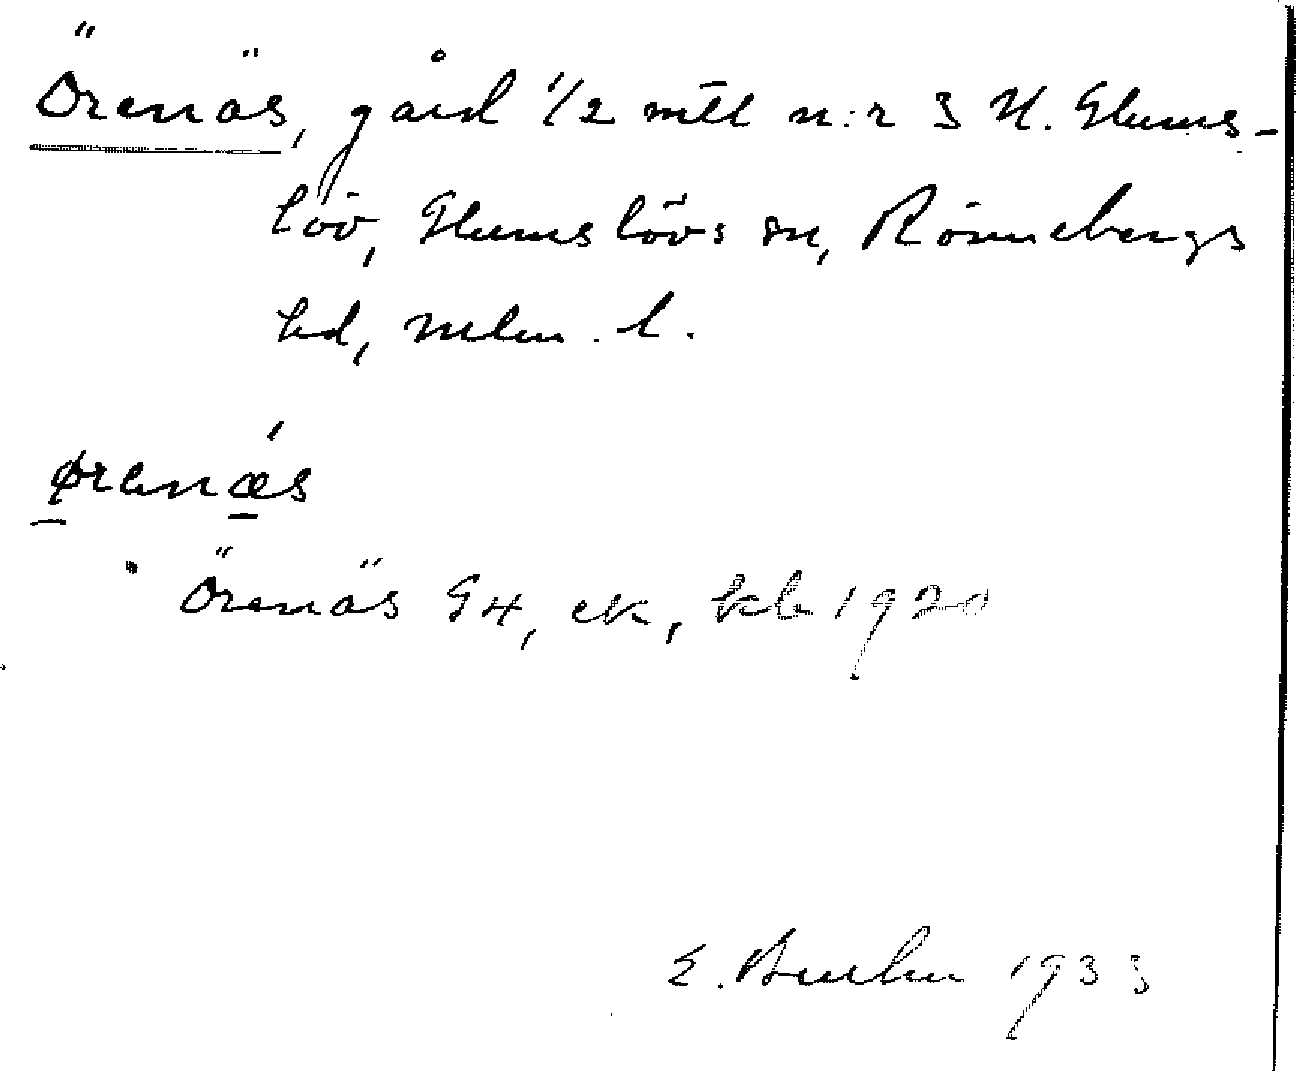 Örenäs, gård 1/2 mtl n:r 3 N. Glums-
löv, Glumslövs sn, Rönnebergs
hd, Mlm. l.
ørenǽs
Örenäs G4, ek, kb 1920
E. 1933